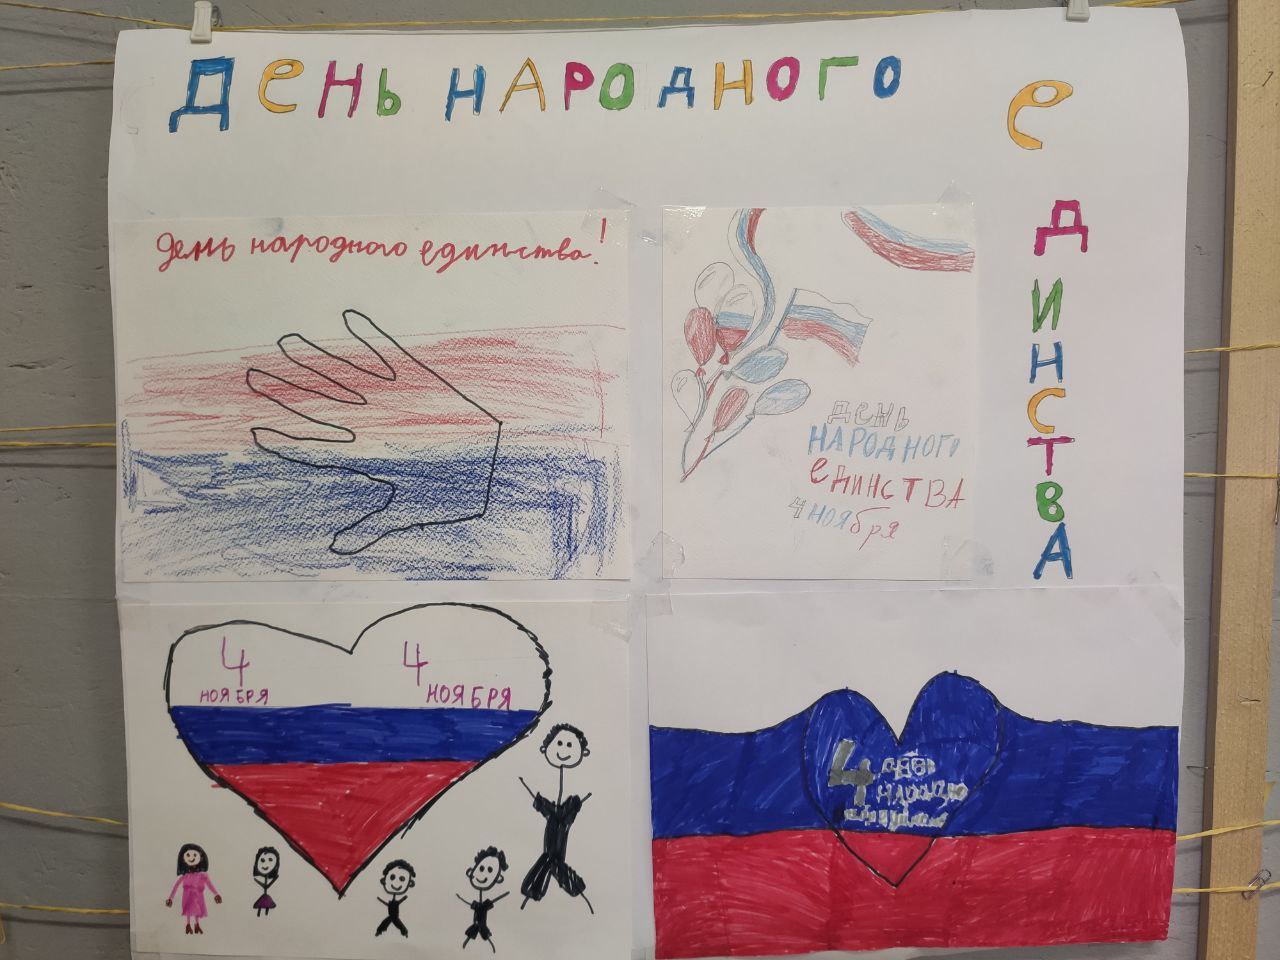 День народного
единства
день народного единства!
ДЕНЬ
НАРОДНОГО
ЕДИНСТВА
4 НОЯБРЯ
4
НОЯБРЯ
4
НОЯБРЯ
4